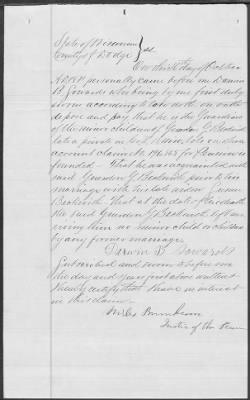 State of Wisconsin
County of Dodge } ss
On this day of October
A.D. 1878 personally came before me Darwin
B. Gowards who being by me first duly
sworn according to law doth on oath
depose and say that he is the Guardian
of the minor children of Gurdon G. Beckwith
late a private in Co. Wis. Vols. on whose
account claim No. 196.165 for Pension is
founded. That he was acquainted with
said Gurdon G. Beckwith prior to his
marriage with his late widow
Beckwith. That at the date of his death
the said Gurdon G. Beckwith left sur
viving him no minor child or children
by any former marriage
Darwin B. Gowards
Subscribed and sworn to before me
the day and year first above written
I hereby certify that I have no interest
in this claim.
Miles Burnham
Justice of the Peace